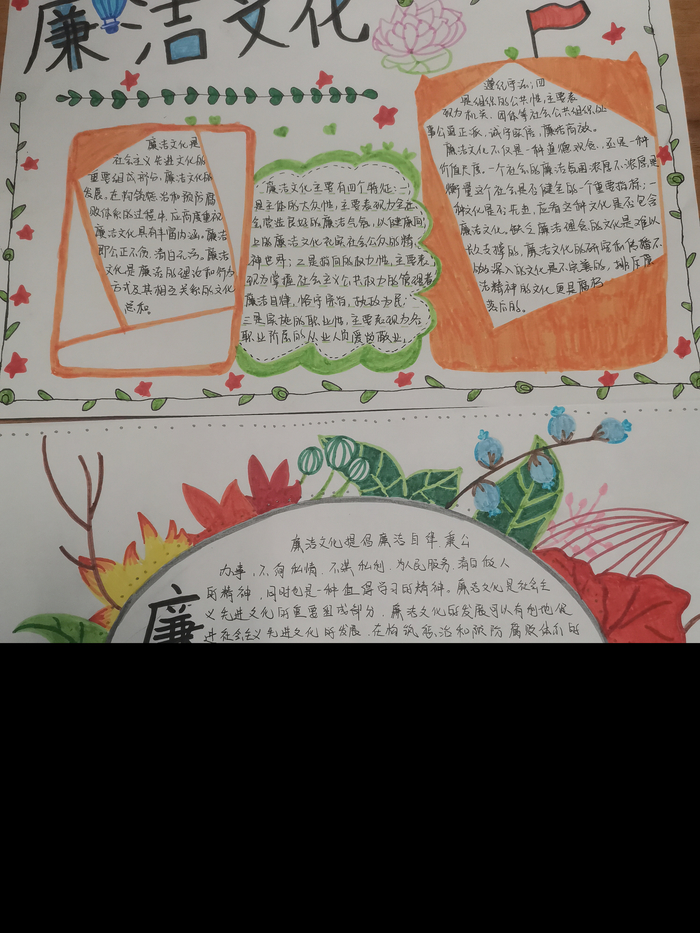 廉洁文化
廉洁文化是
社会主义先进文化的
重要组成部分。廉洁文化的
发展。在构筑惩治和预防腐
败体系的过程中,应高度重视
廉洁文化具有丰富内涵。廉洁
即公正不贪,清白无污。廉洁
文化是廉洁的理论和行为
方式及其相互关系的文化
总和。
廉洁文化主要有四个特征:一
是主体的大众性,主要表现为全社
会营造良好的廉洁气氛,以健康向
上的廉洁文化充实社会公众的精
神世界;二是时间的权力性,主要表
现为掌握社会主义公共权力的管理者
廉洁自律,恪守清明,执政为民;
三是实施的职业性,主要表现为各
职业阶层的从业人员爱岗敬业,
遵纪守法;四
是组织的公共性,主要表
现为机关、团体等社会公共组织的
事公正正派,诚守宗信,廉洁高效。
廉洁文化不仅是一种道德观念,还是一种
价值尺度。一个社会的廉洁氛围浓厚不浓厚,是
衡量这个社会是否健全的一个重要指标;一
种文化是否先进,应看这种文化是否包含
廉洁文化。缺乏廉洁理念的文化是难以
长久支撑的,廉洁文化的研究和传播不
的深入的文化是不完善的,排斥廉
洁精神的文化更是腐朽
落后的。
廉洁文化提倡廉洁自律,秉公
办事,不徇私情,不谋私利,为民服务,清白做人
的精神,同时也是一种值得学习的精神。廉洁文化是社会主
义先进文化的重要组成部分,廉洁文化的发展可以有利地促
进社会主义先进文化的发展,在构筑惩治和预防腐败体系的
廉